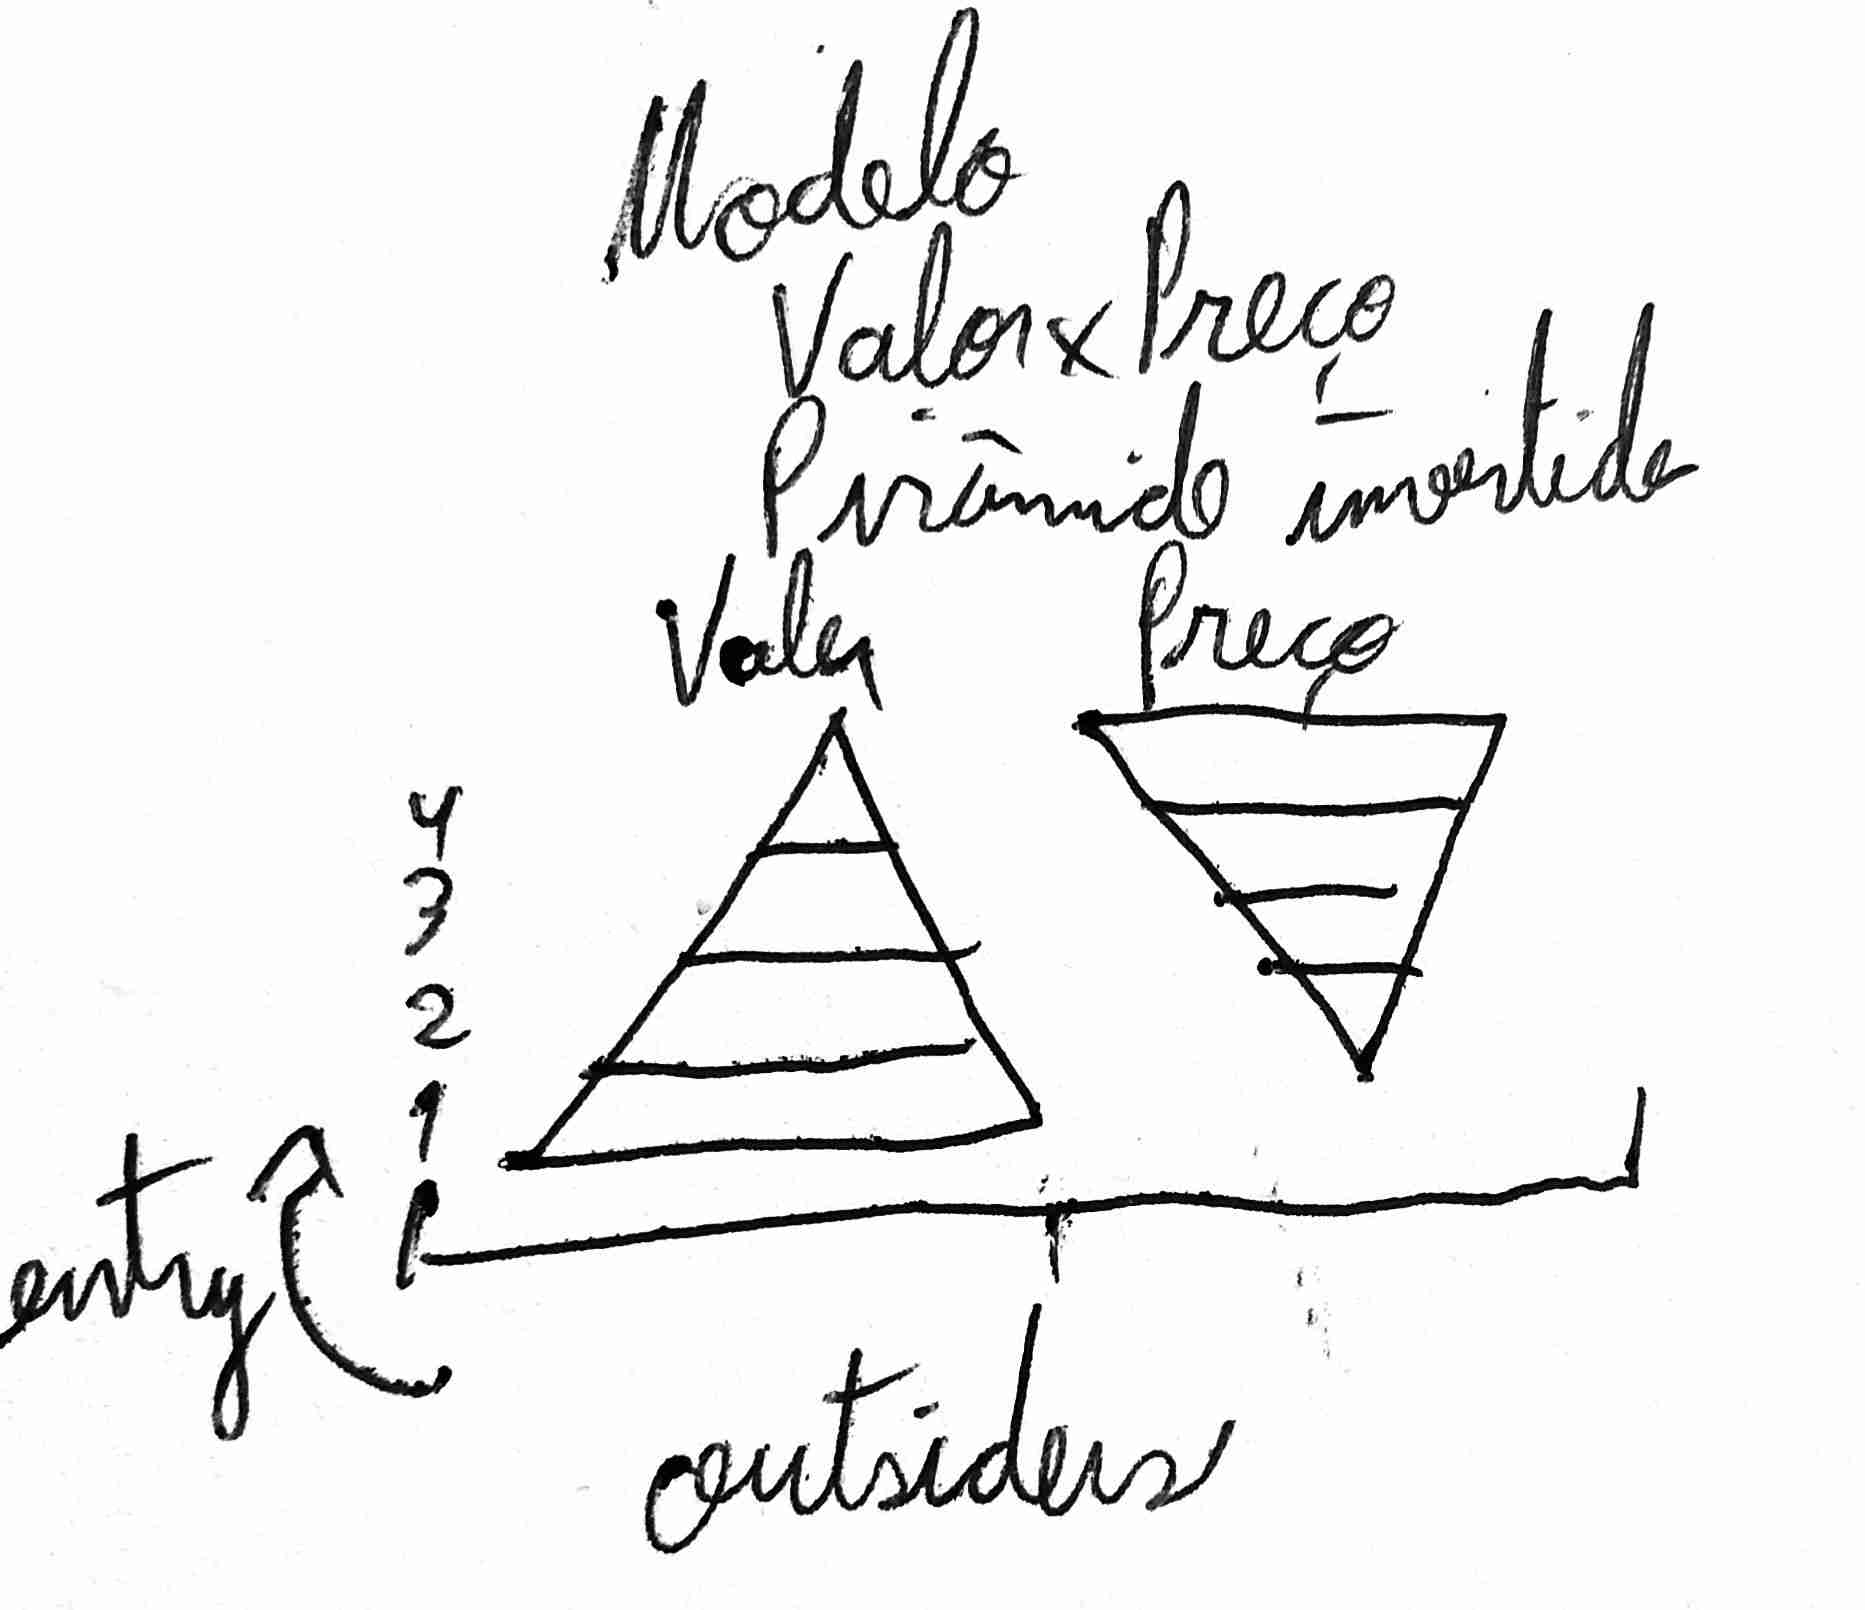 Modelo
Valor x Preço
Pirâmide invertida
Valor Preço
4
3
2
1
entry
outsiders